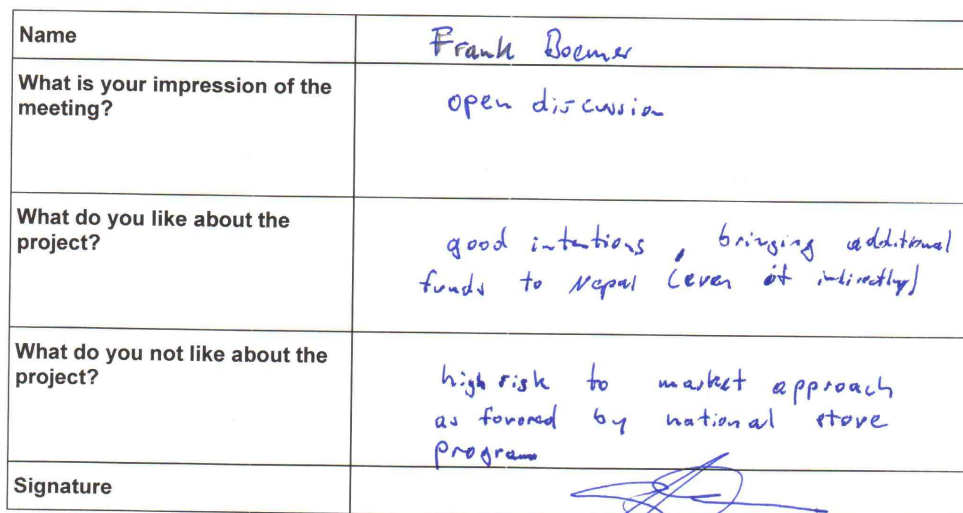 Name
Frank Boemer
What is your impression of the
meeting?
open discussion
What do you like about the
project?
good intentions, bringing additional
funds to Nepal (even if indirectly)
What do you not like about the
project?
high risk to market approach
as favored by national stove
program
Signature